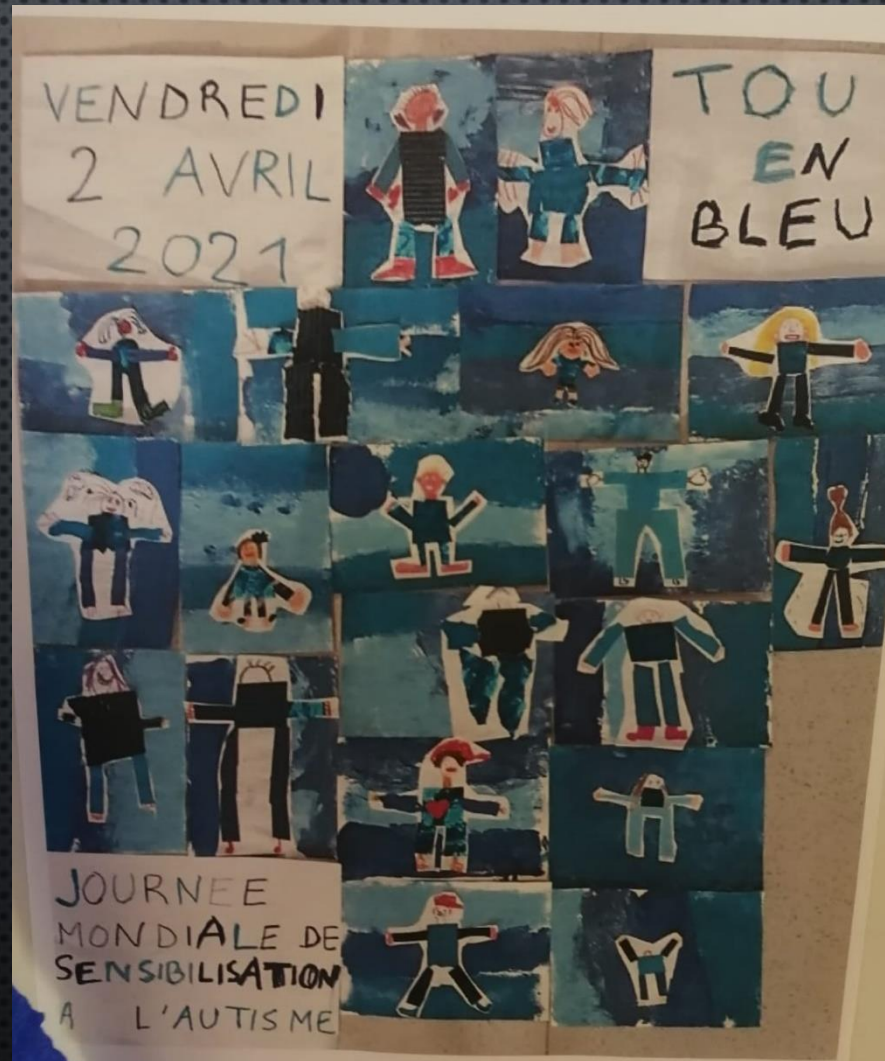 VENDREDI
2 AVRIL
2021
TOU
EN
BLEU
JOURNEE
MONDIALE DE
SENSIBILISATION
A L'AUTISME